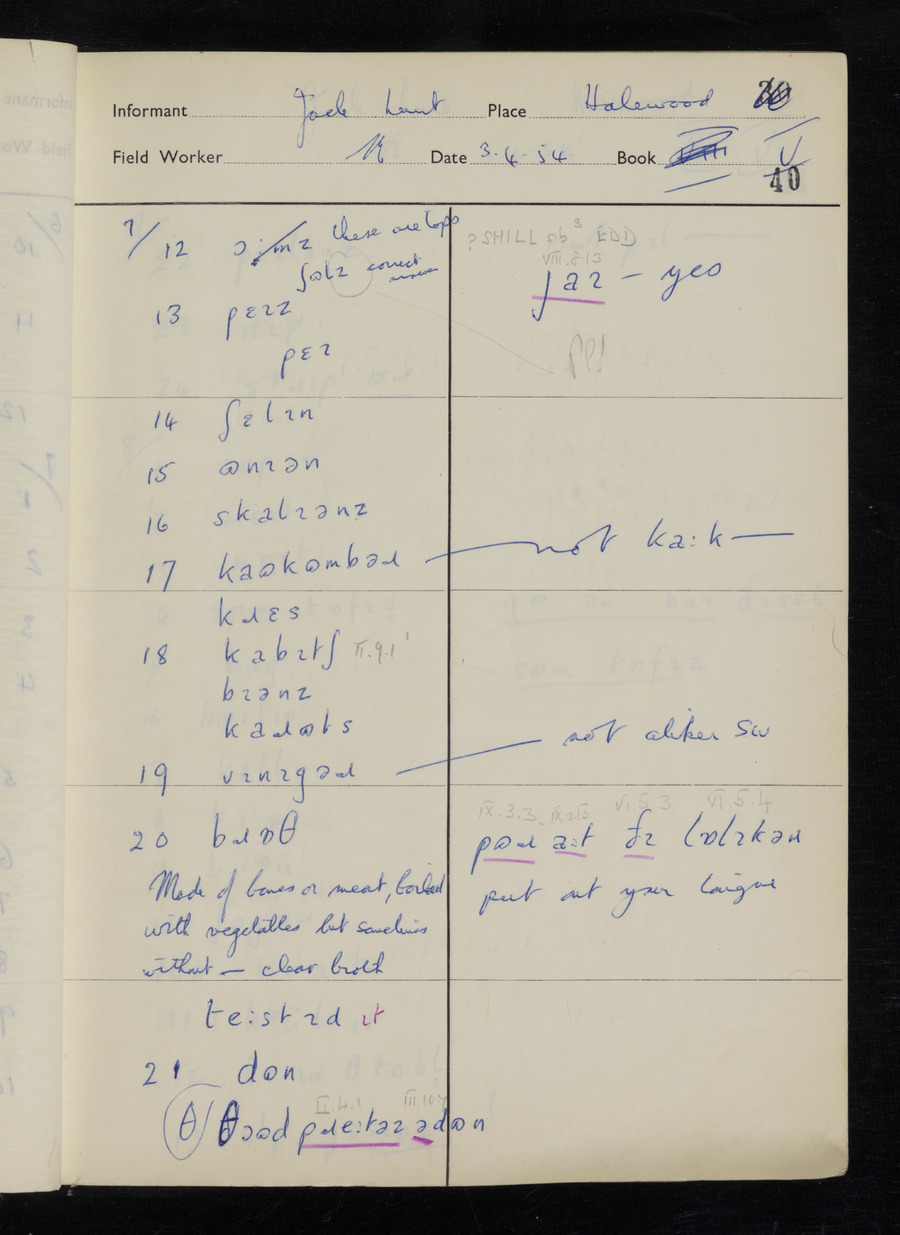 Informant Jack Lunt Place Halewood
Field Worker Date 3.4.54 Book V
40
7/12 these are tops
ʃɷlz correct answer
? SHILL sb³ EDD
VIII.8.13
jaɪ — yes
13 pɛɪz
pɛɪ
14 ʃɛlɪn
15 ɷnɪən
16 skalɪənz
17 kaɷkɷmbəɹ — not ka:k —
kɹɛs
18 kabɪtʃ II.9.1
bɪənz
kaɹɷts
19 vɪnɪgəɹ — not
20 bɹɒθ
Made of bones or meat, boiled
with vegetables but sometimes
without — clear broth
IX.3.3 VI.5.3 VI.5.4
pɷɹ a:t ðɪ lɒlɪkəɹ
put out your tongue
te:stɪd ɪt
21 dɷn
II.4.1
θ/ pɹe:təɪ ədɷn